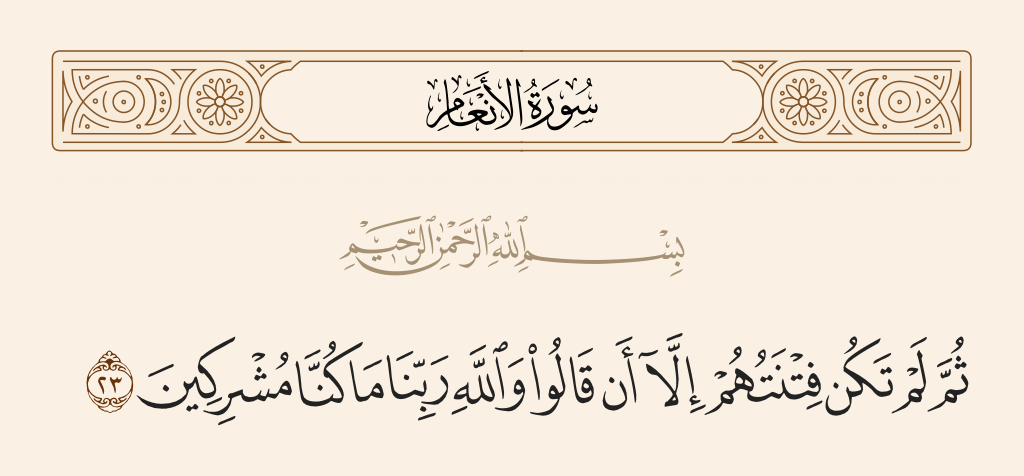 سُورَةُ الأَنْعَامِ
بِسْمِ ٱللَّهِ ٱلرَّحْمَٰنِ ٱلرَّحِيمِ
ثُمَّ لَمْ تَكُن فِتْنَتُهُمْ إِلَّآ أَن قَالُوا۟ وَٱللَّهِ رَبِّنَا مَا كُنَّا مُشْرِكِينَ ٢٣